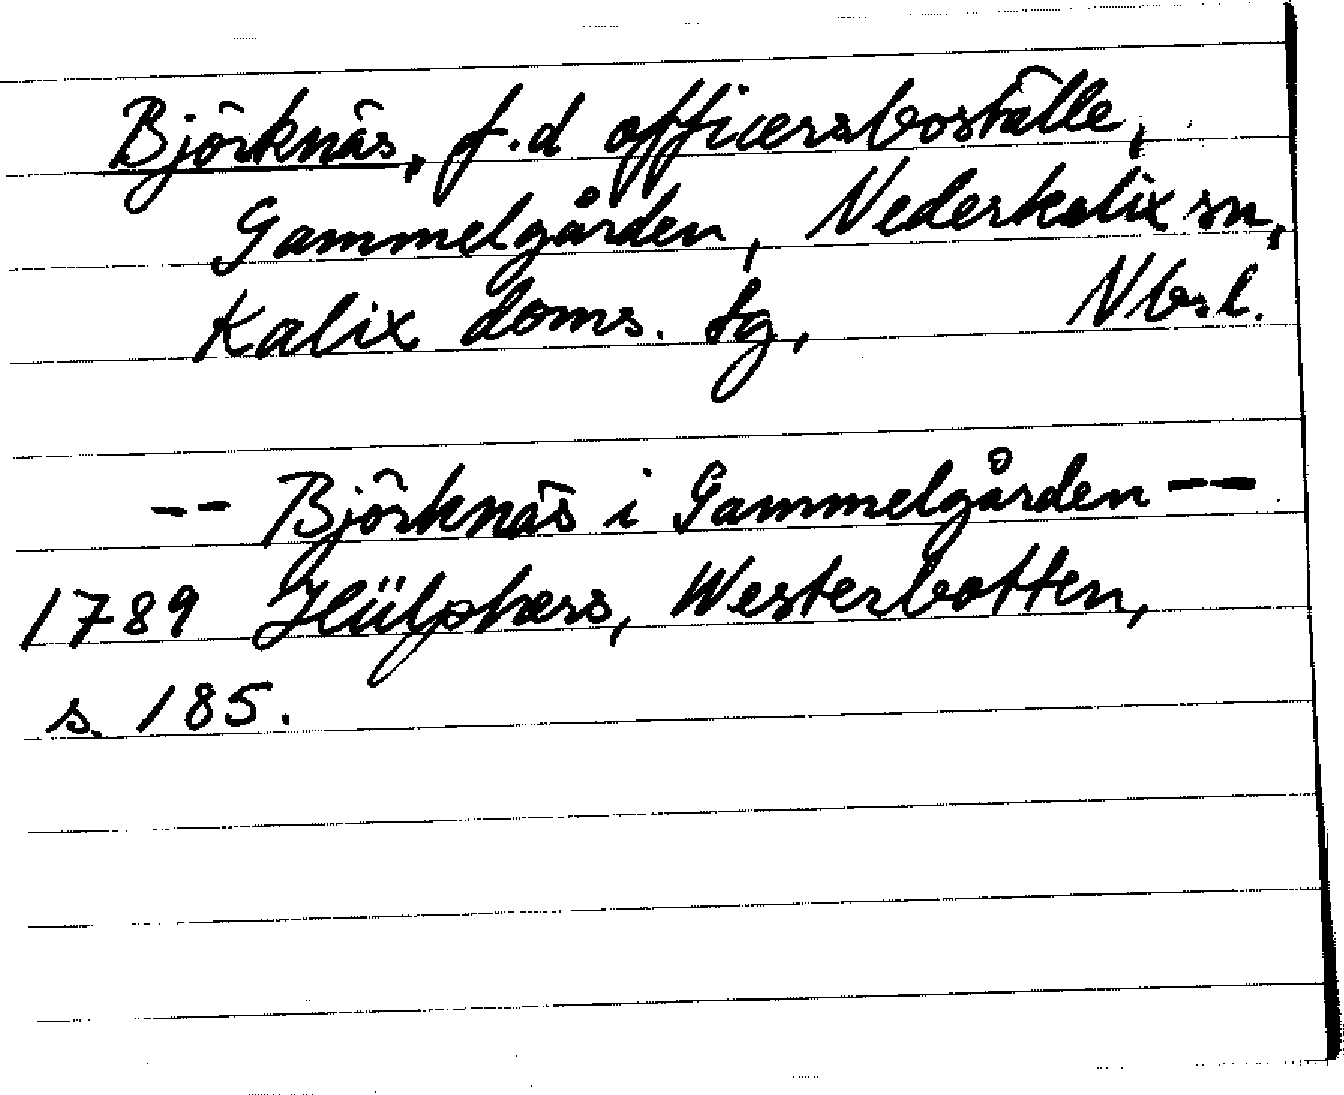 Björknäs, f.d officersboställe,
Gammelgården, Nederkalix sn,
Kalix doms. tg, Nb.l.
-- Björknäs i Gammelgården --
1789 Hülphers, Westerbotten,
s. 185.